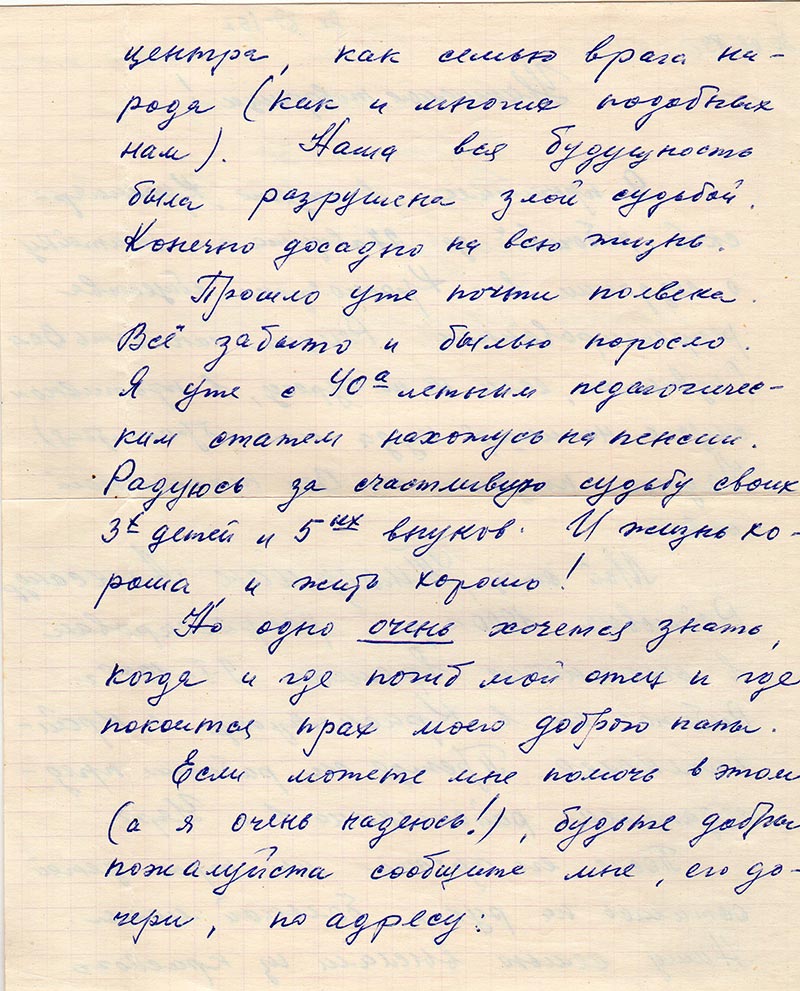 центра, как семью врага на-
рода (как и многих подобных
нам). Наша вся будущность
была разрушена злой судьбой.
Конечно досадно на всю жизнь.
Прошло уже почти полвека.
Всё забыто и былью поросло.
Я уже с 40а летним педагогичес-
ким стажем нахожусь на пенсии.
Радуюсь за счастливую судьбу своих
3х детей и 5их внуков. И жизнь хо-
роша, и жить хорошо!
Но одно очень хочется знать,
когда и где погиб мой отец и где
покоится прах моего доброго папы.
Если можете мне помочь в этом
(а я очень надеюсь!), будьте добры
пожалуйста сообщите мне, его до-
чери, по адресу: